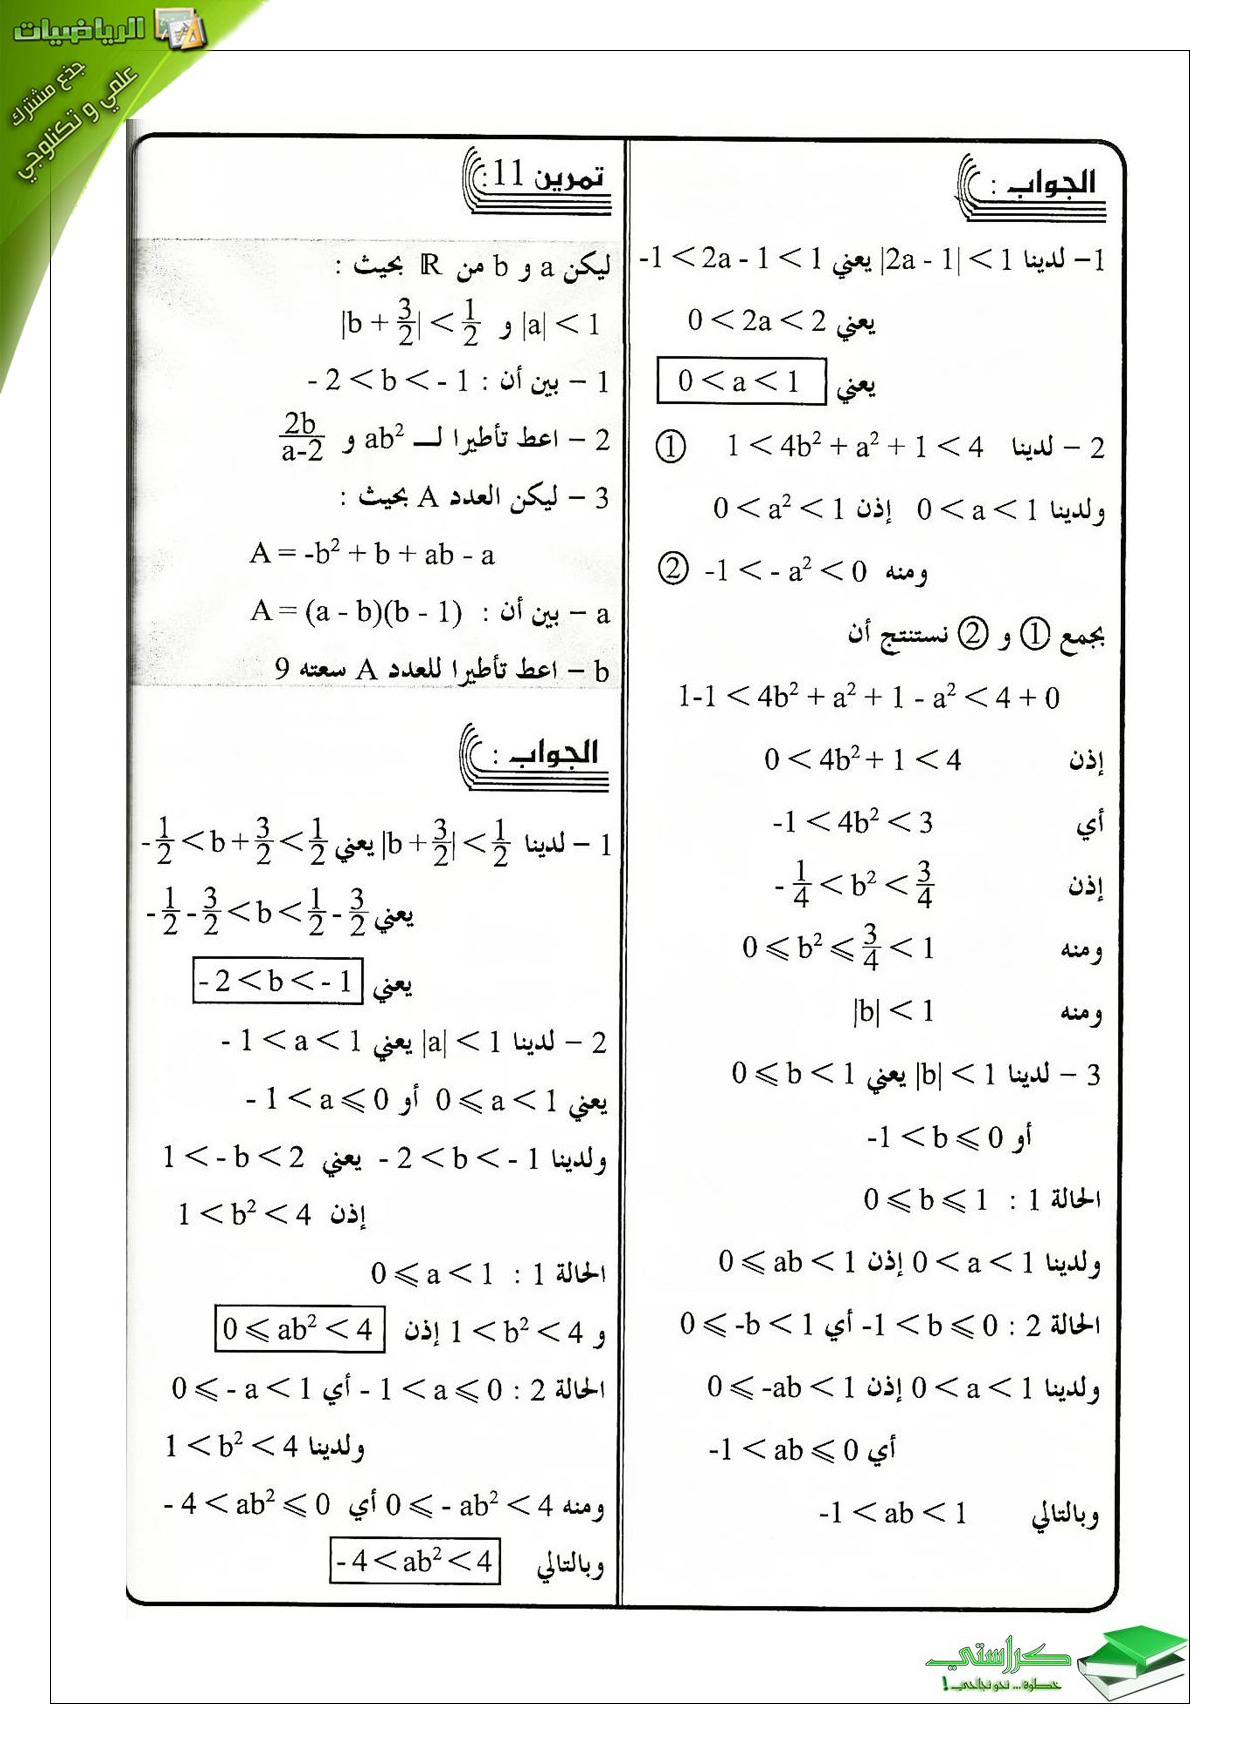 الرياضيات
جذع مشترك
علمي و تكنلوجي
الجواب :
1– لدينا |2a - 1| < 1 يعني -1 < 2a - 1 < 1
يعني 0 < 2a < 2
يعني 0 < a < 1
2 – لدينا 1 < 4b² + a² + 1 < 4 ①
ولدينا 0 < a < 1 إذن 0 < a² < 1
ومنه -1 < - a² < 0 ②
بجمع ① و ② نستنتج أن
1-1 < 4b² + a² + 1 - a² < 4 + 0
إذن 0 < 4b² + 1 < 4
أي -1 < 4b² < 3
إذن - 1/4 < b² < 3/4
ومنه 0 ⩽ b² ⩽ 3/4 < 1
ومنه |b| < 1
3 – لدينا |b| < 1 يعني 0 ⩽ b < 1
أو -1 < b ⩽ 0
الحالة 1 : 0 ⩽ b ⩽ 1
ولدينا 0 < a < 1 إذن 0 ⩽ ab < 1
الحالة 2 : -1 < b ⩽ 0 أي 0 ⩽ -b < 1
ولدينا 0 < a < 1 إذن 0 ⩽ -ab < 1
أي -1 < ab ⩽ 0
وبالتالي -1 < ab < 1
تمرين 11:
ليكن a و b من ℝ بحيث :
|a| < 1 و |b + 3/2| < 1/2
1 – بين أن : - 2 < b < - 1
2 – اعط تأطيرا لــ ab² و 2b/a-2
3 – ليكن العدد A بحيث :
A = -b² + b + ab - a
a – بين أن : A = (a - b)(b - 1)
b – اعط تأطيرا للعدد A سعته 9
الجواب :
1 – لدينا |b + 3/2| < 1/2 يعني -1/2 < b + 3/2 < 1/2
يعني -1/2 - 3/2 < b < 1/2 - 3/2
يعني - 2 < b < - 1
2 – لدينا |a| < 1 يعني - 1 < a < 1
يعني 0 ⩽ a < 1 أو - 1 < a ⩽ 0
ولدينا - 2 < b < - 1 يعني 1 < - b < 2
إذن 1 < b² < 4
الحالة 1 : 0 ⩽ a < 1
و 1 < b² < 4 إذن 0 ⩽ ab² < 4
الحالة 2 : - 1 < a ⩽ 0 أي 0 ⩽ - a < 1
ولدينا 1 < b² < 4
ومنه 0 ⩽ - ab² < 4 أي - 4 < ab² ⩽ 0
وبالتالي - 4 < ab² < 4
كراستي
خطوة... نحو نجاحي !